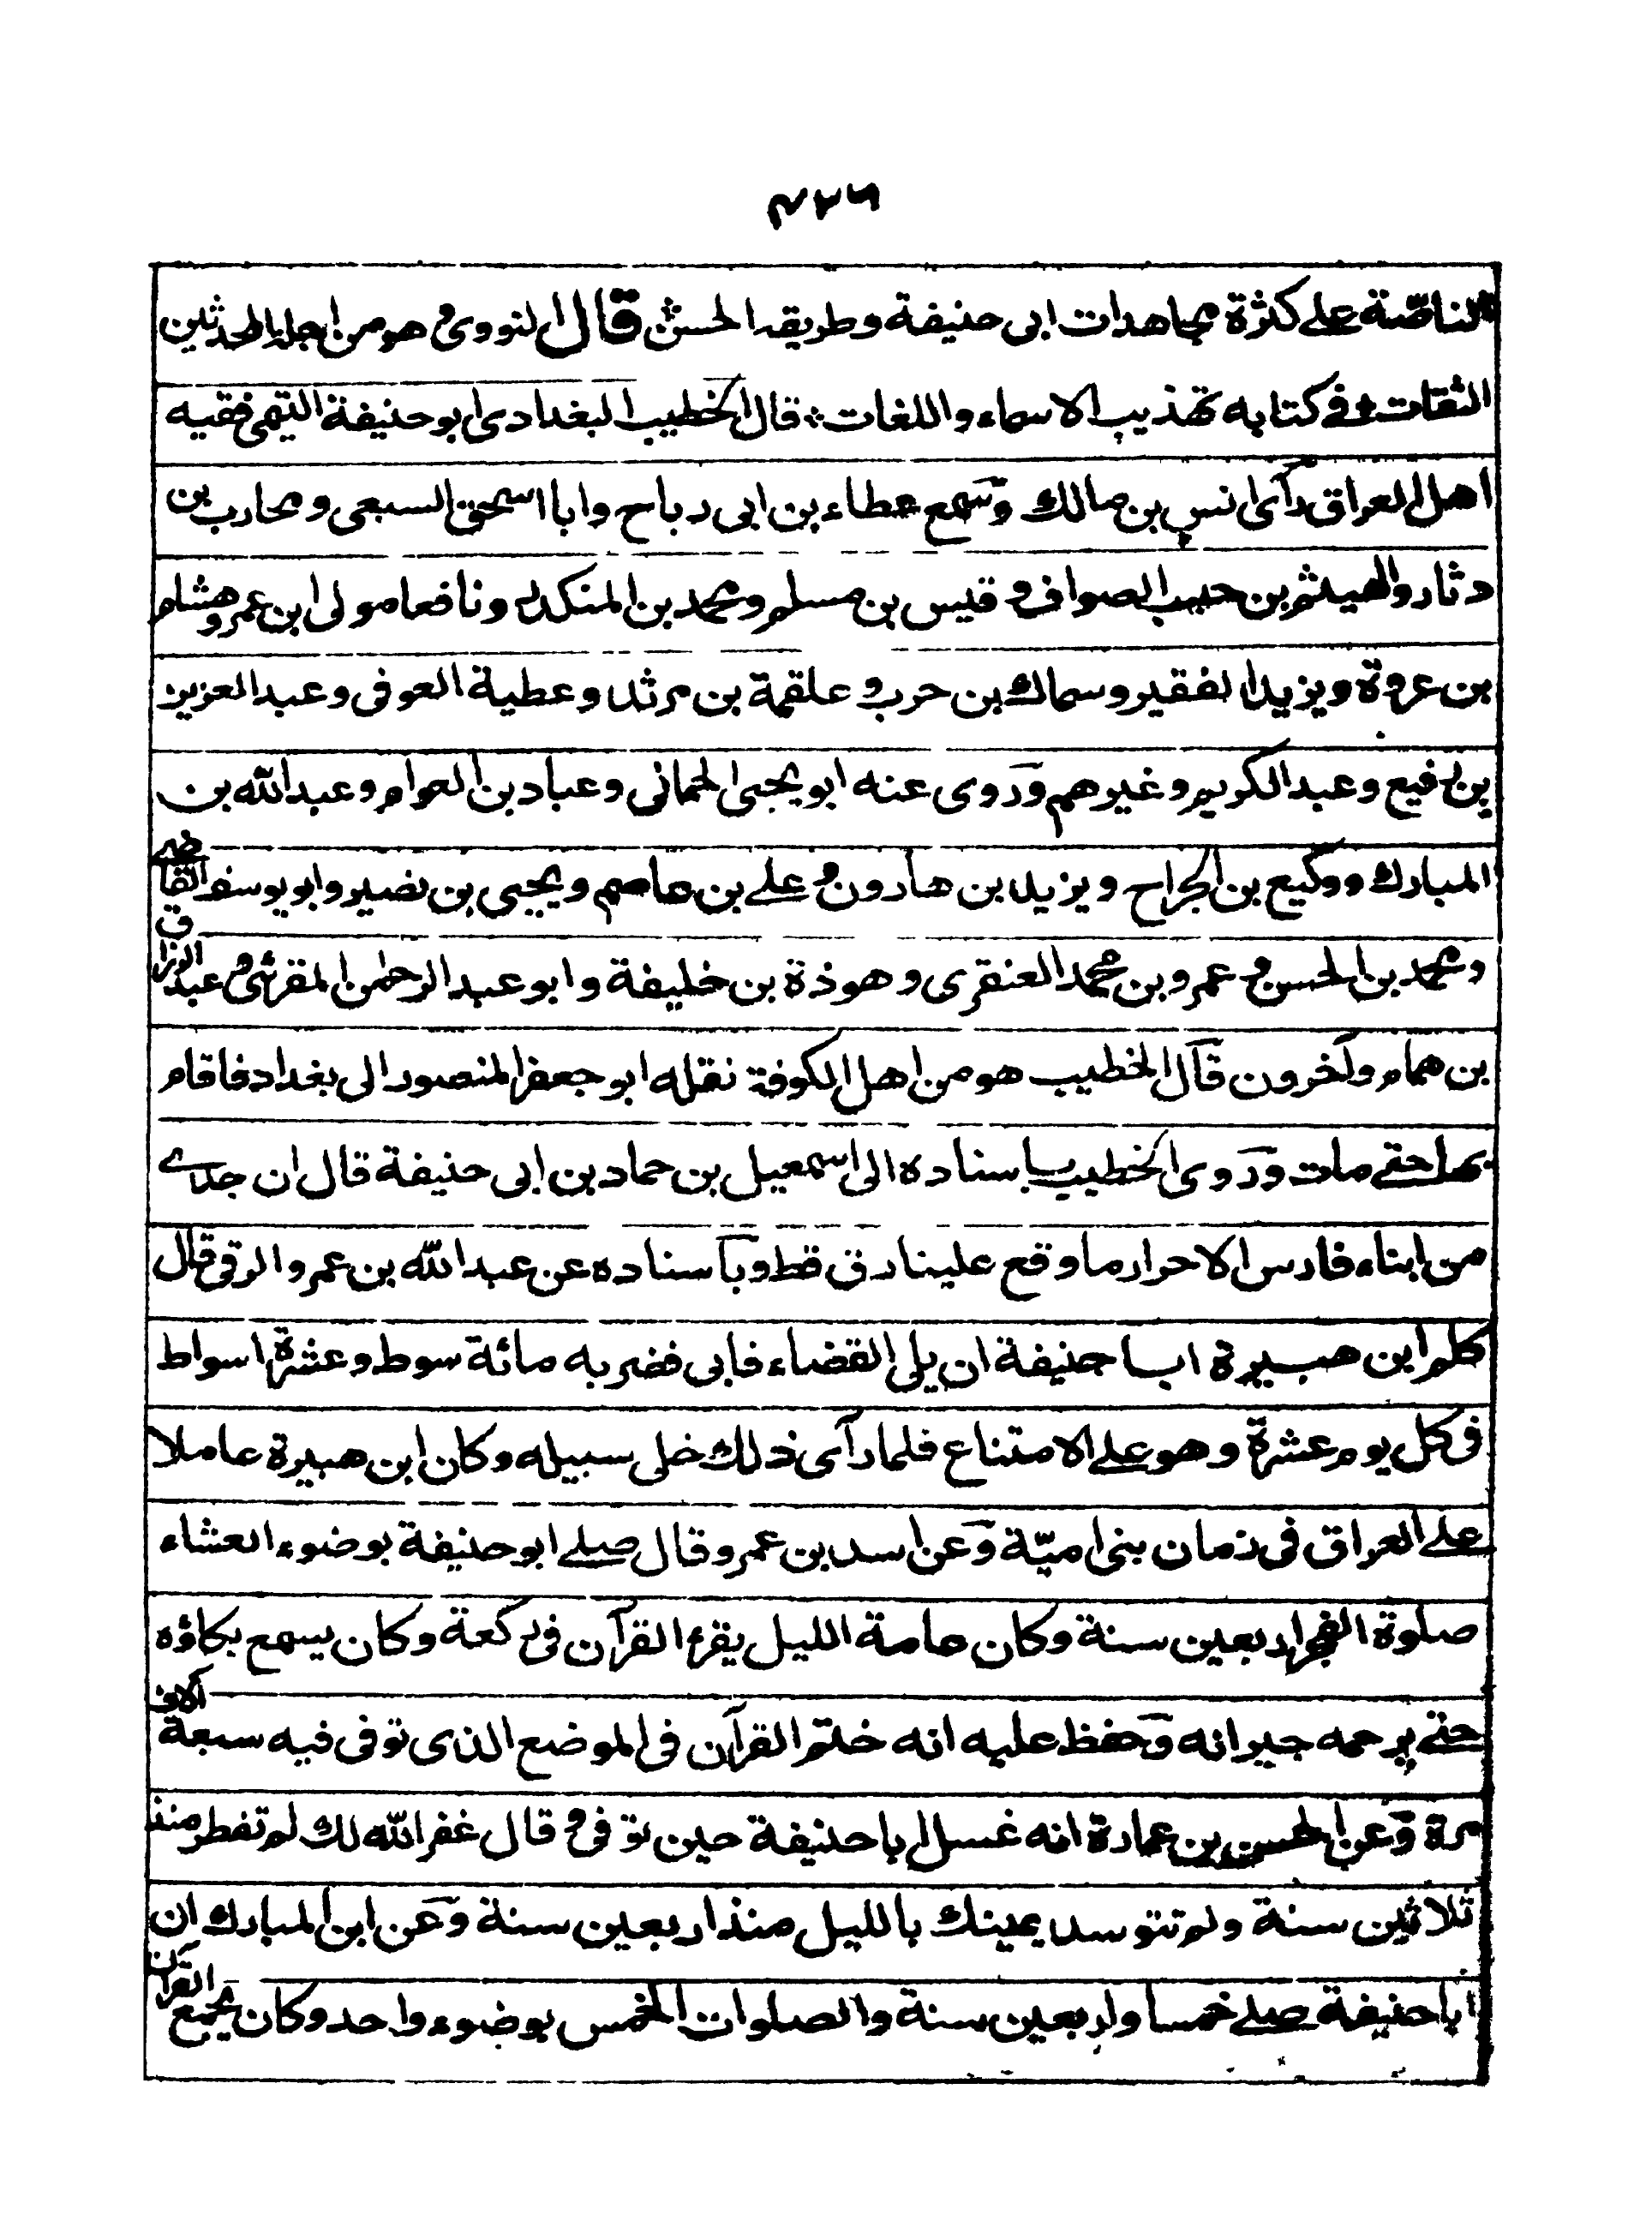 ٤٢٦
الناصّة على كثرة مجاهدات ابى حنيفة وطريقه الحسن قال النووى وهو من اجلة المحدثين
الثقات فى كتابه تهذيب الاسماء واللغات قال الخطيب البغدادى ابو حنيفة التيمى فقيه
اهل العراق رأى انس بن مالك وسمع عطاء بن ابى رباح وابا اسحق السبعى ومحارب بن
دثار والهيثم بن حبيب الصواف وقيس بن مسلم ومحمد بن المنكدر ونافعا مولى ابن عمر وهشام
بن عروة ويزيد الفقير وسماك بن حرب وعلقمة بن مرثد وعطية العوفى وعبد العزيز
بن رفيع وعبد الكريم وغيرهم وروى عنه ابو يحيى الحمانى وعباد بن العوام وعبد الله بن
المبارك ووكيع بن الجراح ويزيد بن هارون وعلى بن عاصم ويحيى بن نصير وابو يوسف القاضى
ومحمد بن الحسن وعمرو بن محمد العنقرى وهوذة بن خليفة وابو عبد الرحمن المقرئ وعبد الرزاق
بن همام وآخرون قال الخطيب هو من اهل الكوفة نقله ابو جعفر المنصور الى بغداد فاقام
بها حتى مات وروى الخطيب باسناده الى اسمعيل بن حماد بن ابى حنيفة قال ان جدى
من ابناء فارس الاحرار ما وقع علينا رق قط وباسناده عن عبد الله بن عمرو الرقى قال
كلم ابن هبيرة ابا حنيفة ان يلى القضاء فابى فضربه مائة سوط وعشرة اسواط
فى كل يوم عشرة وهو على الامتناع فلما رأى ذلك خلى سبيله وكان ابن هبيرة عاملا
على العراق فى زمان بنى اميّة وعن اسد بن عمرو قال صلى ابو حنيفة بوضوء العشاء
صلوة الفجر اربعين سنة وكان عامة الليل يقرأ القرآن فى ركعة وكان يسمع بكاؤه
حتى يرحمه جيرانه وحفظ عليه انه ختم القرآن فى الموضع الذى توفى فيه سبعة آلاف
مرة وعن الحسن بن عمارة انه غسل ابا حنيفة حين توفى وقال غفر الله لك لم تفطر منذ
ثلاثين سنة ولم تتوسد يمينك بالليل منذ اربعين سنة وعن ابن المبارك ان
ابا حنيفة صلى خمسا واربعين سنة والصلوات الخمس بوضوء واحد وكان يجمع القرآن